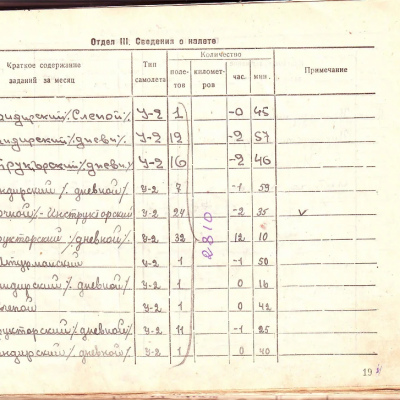 Отдел III. Сведения о налете
Краткое содержание заданий за месяц Тип самолета Количество полетов километров час. мин. Примечание
андирский/. Слепой/. У-2 1 -0 45
андирский/. дневн/. У-2 12 -2 57
трукторский/. дневн/ У-2 16 -2 46
ндирский /. дневной/. У-2 7 -1 59
очной/. - Инструкторский У-2 24 -2 35 v
рукторский /. дневной/. У-2 32 2810 12 10
Штурманский У-2 1 -1 50
ндирский /. дневной/. У-2 1 0 16
слепой У-2 1 0 42
рукторский /. дневной/. У-2 11 -1 25
андирский /. дневной/. У-2 1 0 40
19